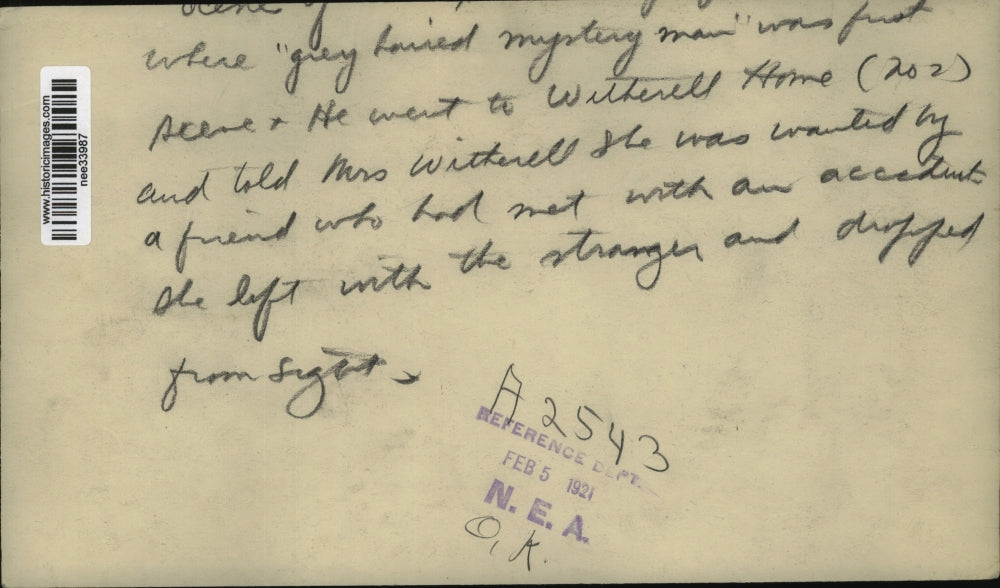 Scene of
where "grey haired mystery man" was first
scene + He went to Witherell Home (202)
and told Mrs Witherell She was wanted by
a friend who had met with an accident
she left with the stranger and dropped
from sight -
A2543
REFERENCE DEPT.
FEB 5 1921
N. E. A.
O.K.
www.historicimages.com
nee33987